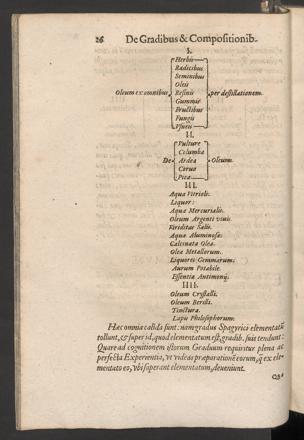 26 De Gradibus & Compositionib.
I.
Herbis
Radicibus
Seminibus
Oleis
Oleum ex omnibus Resinis per destillationem.
Gummis
Fructibus
Fungis
Vsneis
II.
Vulture
Columba
De Ardea Oleum.
Coruo
Pica
III.
Aqua Vitrioli.
Liquor:
Aqua Mercurialis.
Oleum Argenti viui.
Viriditas Salis.
Aqua Aluminosa.
Calcinata Olea.
Olea Metallorum.
Liquores Gemmarum.
Aurum Potabile.
Essentia Antimonij.
IIII.
Oleum Crystalli.
Oleum Berilli.
Tinctura.
Lapis Philosophorum.
Hæc omnia calida sunt: nam gradus Spagyrici elementatũ
tollunt, & super id, quod elementatum est, gradib. suis tendunt:
Quare ad cognitionem istorum Graduum requiritur plena ac
perfecta Experientia, vt videas præparationẽ eorum, q̃ ex ele-
mentato eo, vbi superant elementatum, deueniunt.